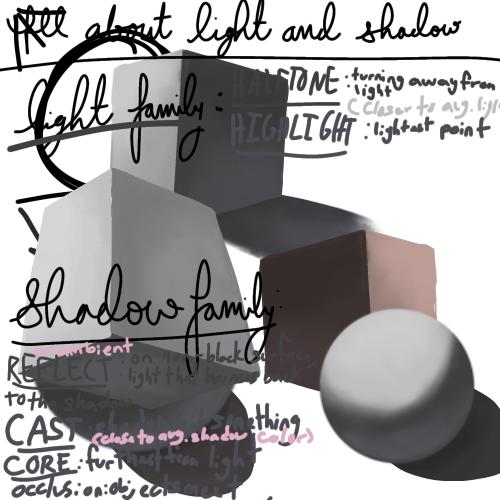 all about light and shadow
light family:
HALFTONE: turning away from light
(closer to avg. light
HIGALIGHT: lightast point
Shadow family:
or ambient
REFLECT: on non-black surfaces,
light that bounces back
to the shadow
CAST: shadow of something
(close to avg. shadow color)
CORE: furthast from light
occlusion: objects meet